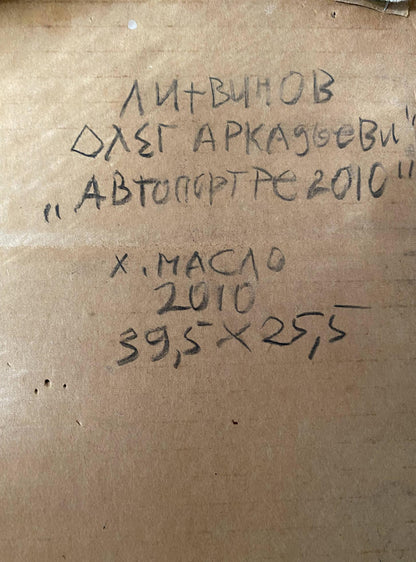 ЛИТВИНОВ
ОЛЕГ АРКАДЬЕВИ"
"АВТОПОРТРЕ 2010"
Х. МАСЛО
2010
39,5 X 25,5